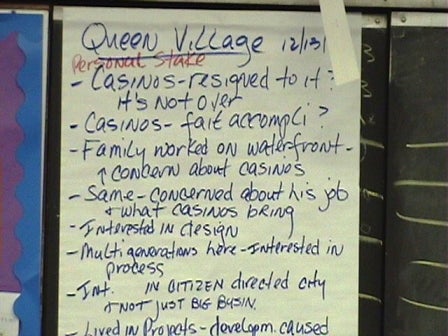 Queen Village 12/13/
Personal Stake
- Casinos - resigned to it?
it's not over
- Casinos - fait accompli?
- Family worked on waterfront -
↑ concern about casinos
- Same - concerned about his job
+ what casinos being
- Interested in design
- Multi generations here - Interested in
process
- Int. in citizen directed city
+ not just big busin.
- Lived in Projects - developm. caused